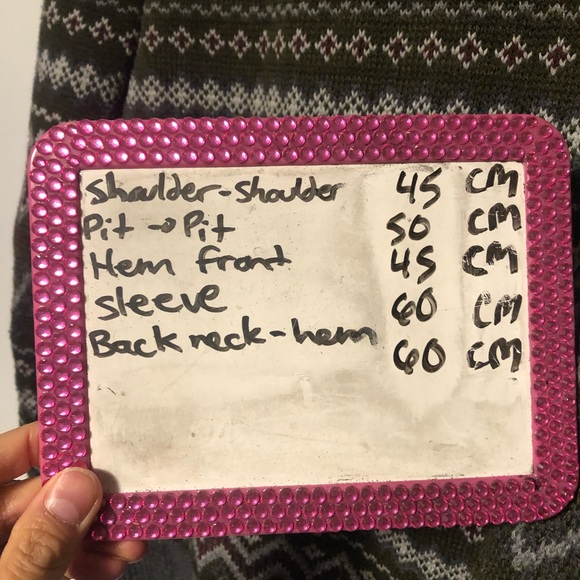 Shoulder-Shoulder 45 CM
Pit → Pit 50 CM
Hem front 45 CM
sleeve 60 CM
Back neck-hem 60 CM